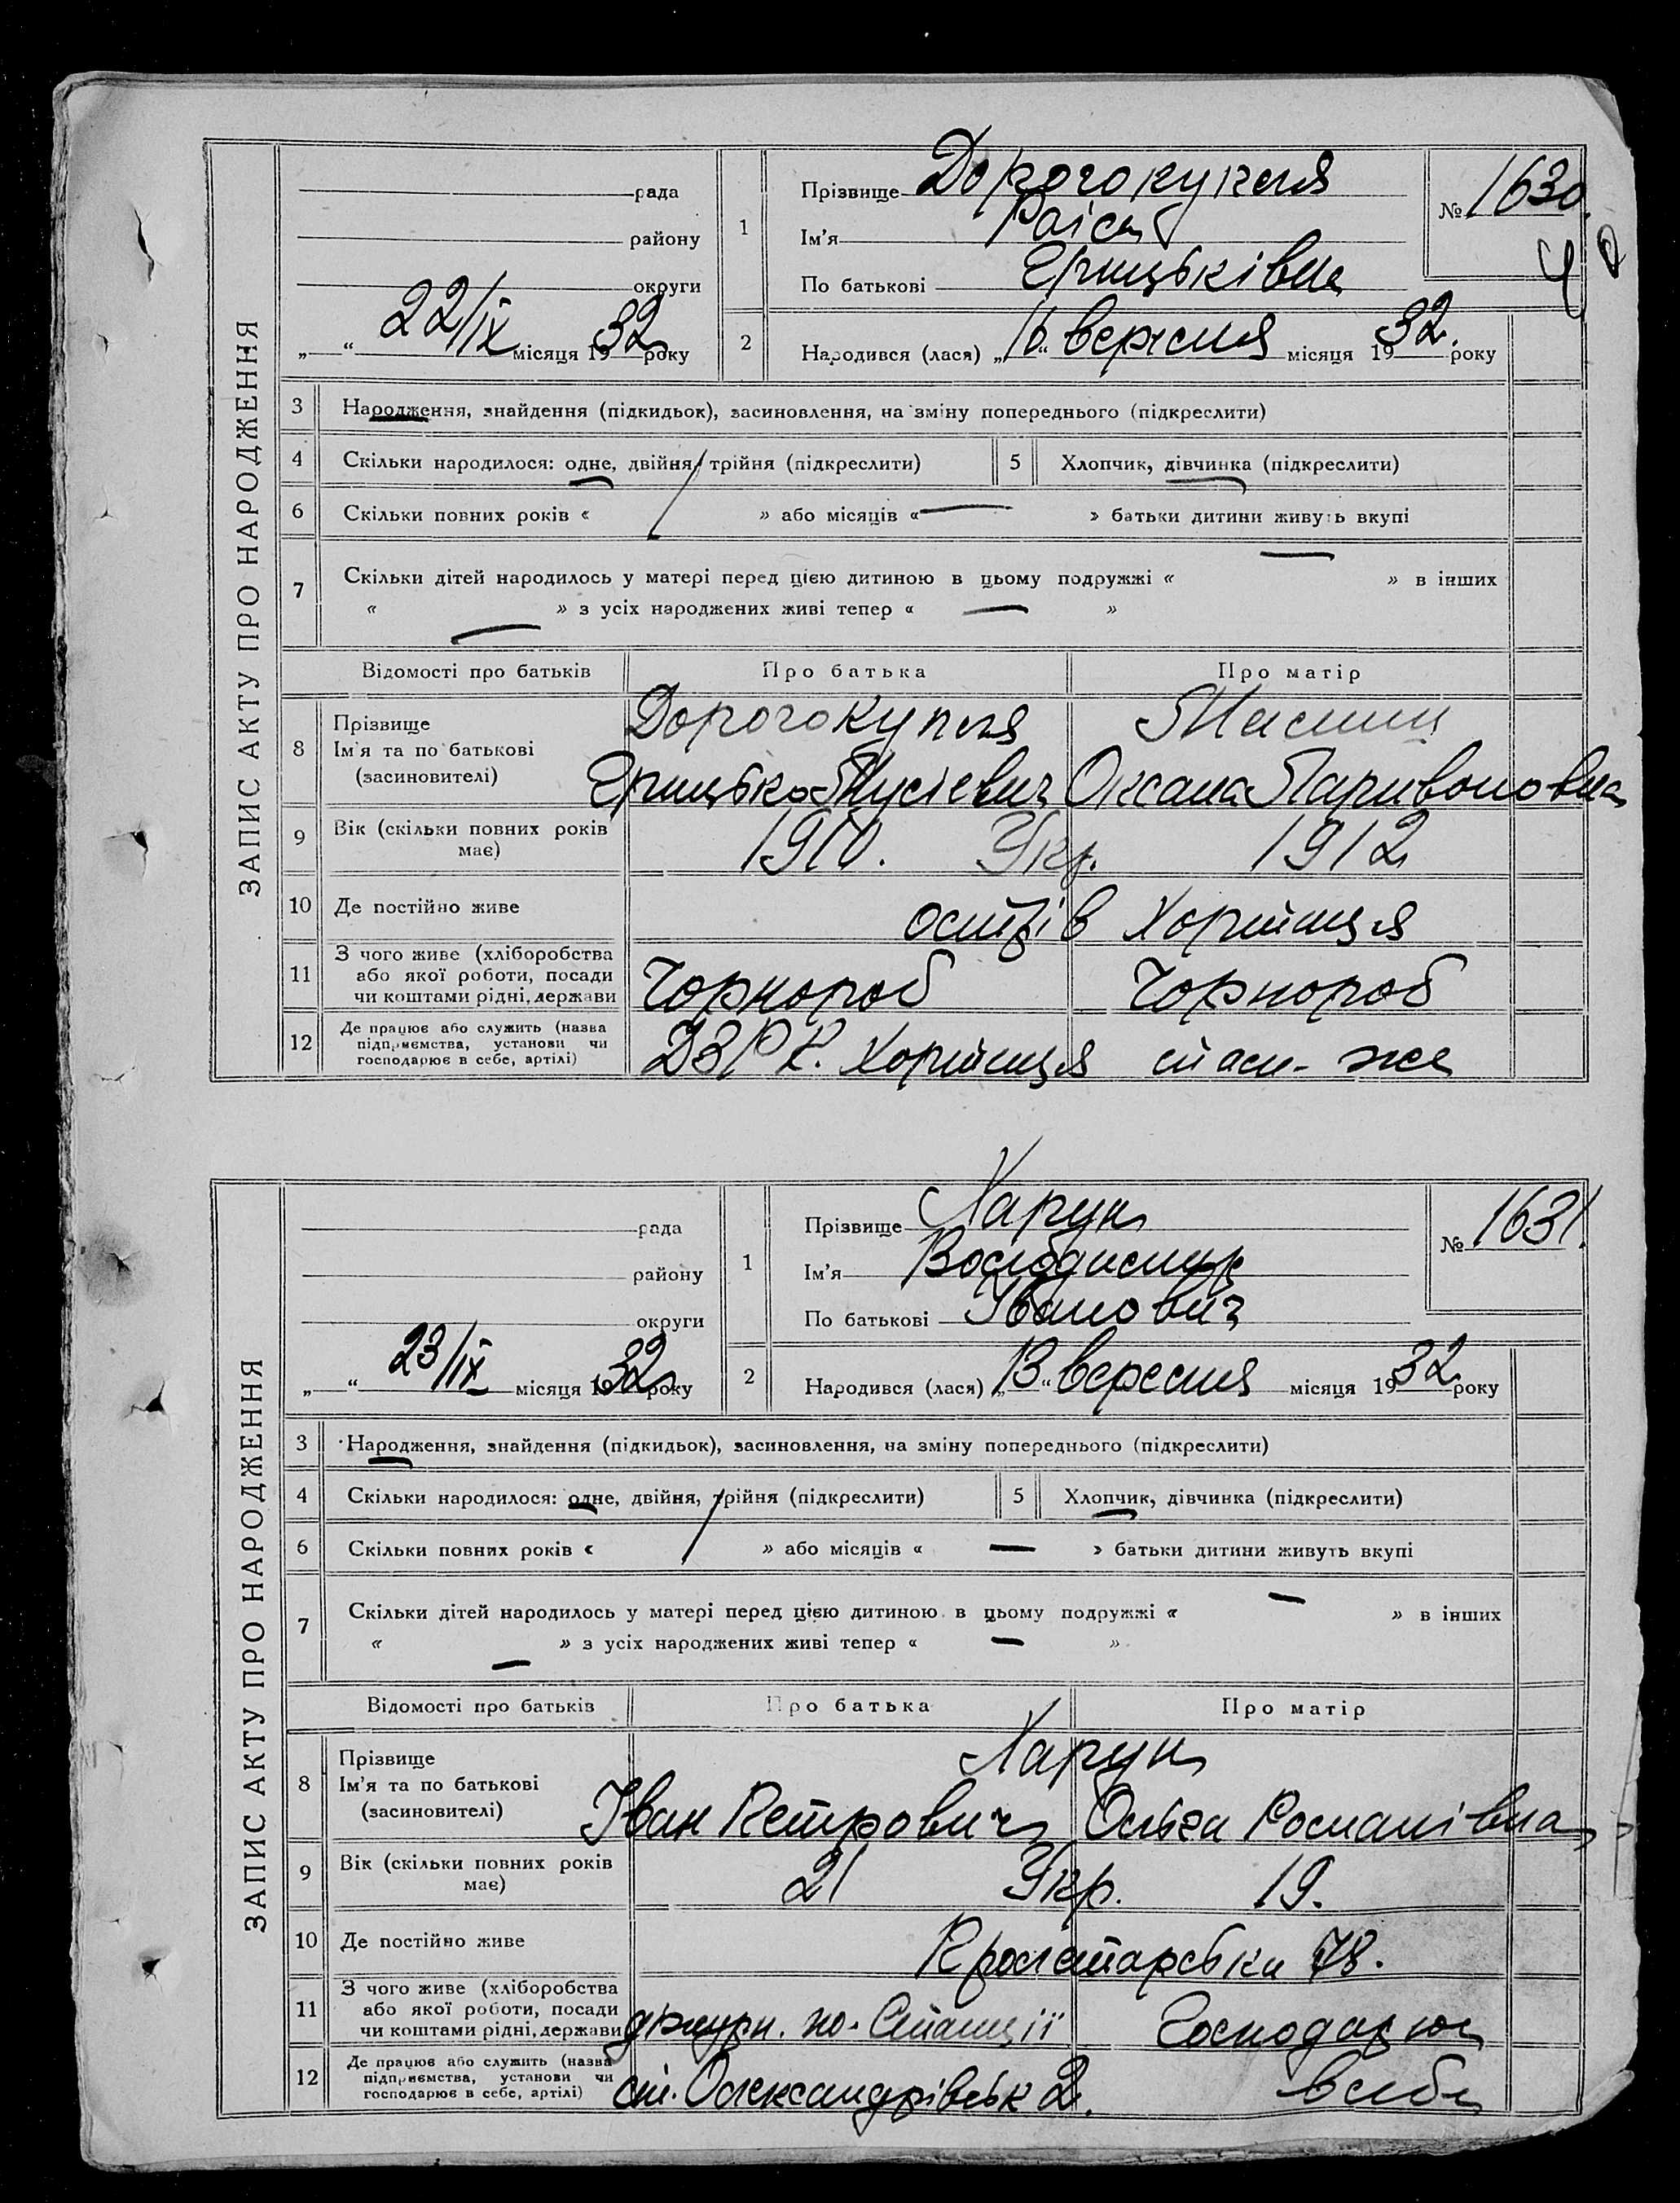 ЗАПИС АКТУ ПРО НАРОДЖЕННЯ
рада
району
округи
22/IX місяця 1932 року
1
Прізвище Дорогокупля
Ім'я Раіса
По батькові Грицьківна
№ 1630.
2
Народився (лася) „16“ вересня місяця 1932. року
3 Народження, знайдення (підкидьок), засиновлення, на зміну попереднього (підкреслити)
4 Скільки народилося: одне, двійня, трійня (підкреслити) 5 Хлопчик, дівчинка (підкреслити)
6 Скільки повних років « » або місяців « — » батьки дитини живуть вкупі
7 Скільки дітей народилось у матері перед цією дитиною в цьому подружжі « — » в інших
« — » з усіх народжених живі тепер « — »
Відомості про батьків Про батька Про матір
8 Прізвище Ім'я та по батькові (засиновителі)
Дорогокупля
Грицько Мусієвич Оксана Паривоновна
9 Вік (скільки повних років має) 1910. Укр. 1912
10 Де постійно живе острів Хортиця
11 З чого живе (хліборобства або якої роботи, посади чи коштами рідні, держави Чорнороб Чорнороб
12 Де працює або служить (назва підприємства, установи чи господарює в себе, артілі) ДЗРК. Хортиця там-же
ЗАПИС АКТУ ПРО НАРОДЖЕННЯ
рада
району
округи
23/IX місяця 1932 року
1
Прізвище Харун
Ім'я Володимир
По батькові Іванович
№ 1631.
2
Народився (лася) „13“ вересня місяця 1932 року
3 Народження, знайдення (підкидьок), засиновлення, на зміну попереднього (підкреслити)
4 Скільки народилося: одне, двійня, трійня (підкреслити) 5 Хлопчик, дівчинка (підкреслити)
6 Скільки повних років « » або місяців « — » батьки дитини живуть вкупі
7 Скільки дітей народилось у матері перед цією дитиною в цьому подружжі « — » в інших
« — » з усіх народжених живі тепер « — »
Відомості про батьків Про батька Про матір
8 Прізвище Ім'я та по батькові (засиновителі)
Харун
Іван Петрович Ольга Романівна
9 Вік (скільки повних років має) 21 Укр. 19.
10 Де постійно живе Пролетарська 78.
11 З чого живе (хліборобства або якої роботи, посади чи коштами рідні, держави джурн. по. Станції Господарює
12 Де працює або служить (назва підприємства, установи чи господарює в себе, артілі) ст. Олександрівськ 2. в себе